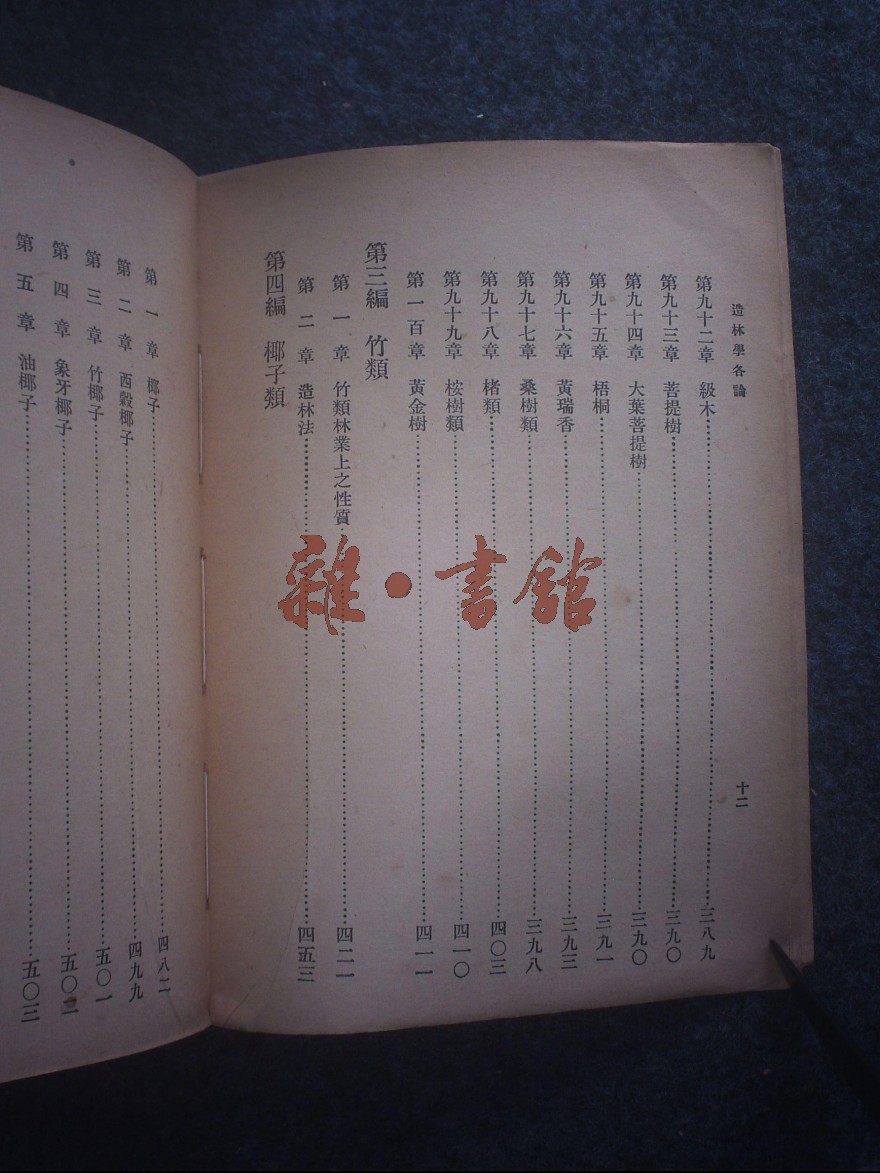 造林學各論
第九十二章 級木 三八九
第九十三章 菩提樹 三九〇
第九十四章 大葉菩提樹 三九〇
第九十五章 梧桐 三九一
第九十六章 黃瑞香 三九三
第九十七章 桑樹類 三九八
第九十八章 楮類 四〇三
第九十九章 桉樹類 四一〇
第一百章 黃金樹 四一一
第三編 竹類
第一章 竹類林業上之性質 四二一
第二章 造林法 四五三
第四編 椰子類
十二
第一章 椰子 四八二
第二章 西穀椰子 四九九
第三章 竹椰子 五〇一
第四章 象牙椰子 五〇二
第五章 油椰子 五〇三
雜•書館